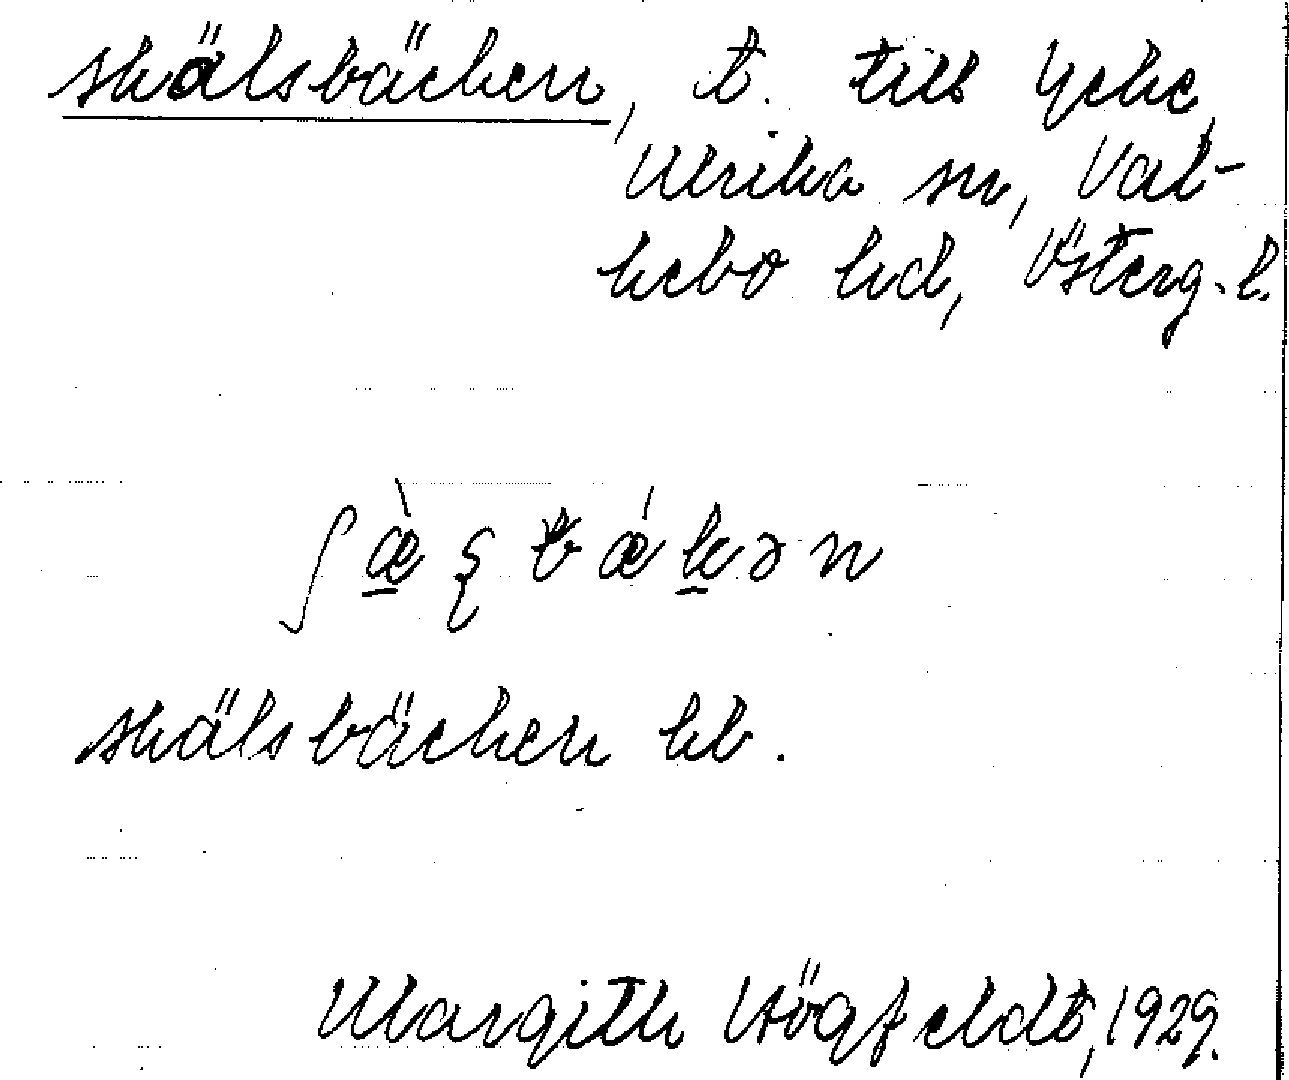 Skälsbäcken, t. till Ycke,
Ulrika sn, Val-
kebo hd, Österg. l.
ʃæ̀ʂbǽkən
Skälsbäcken kb.
Margith Högfeldt, 1929.